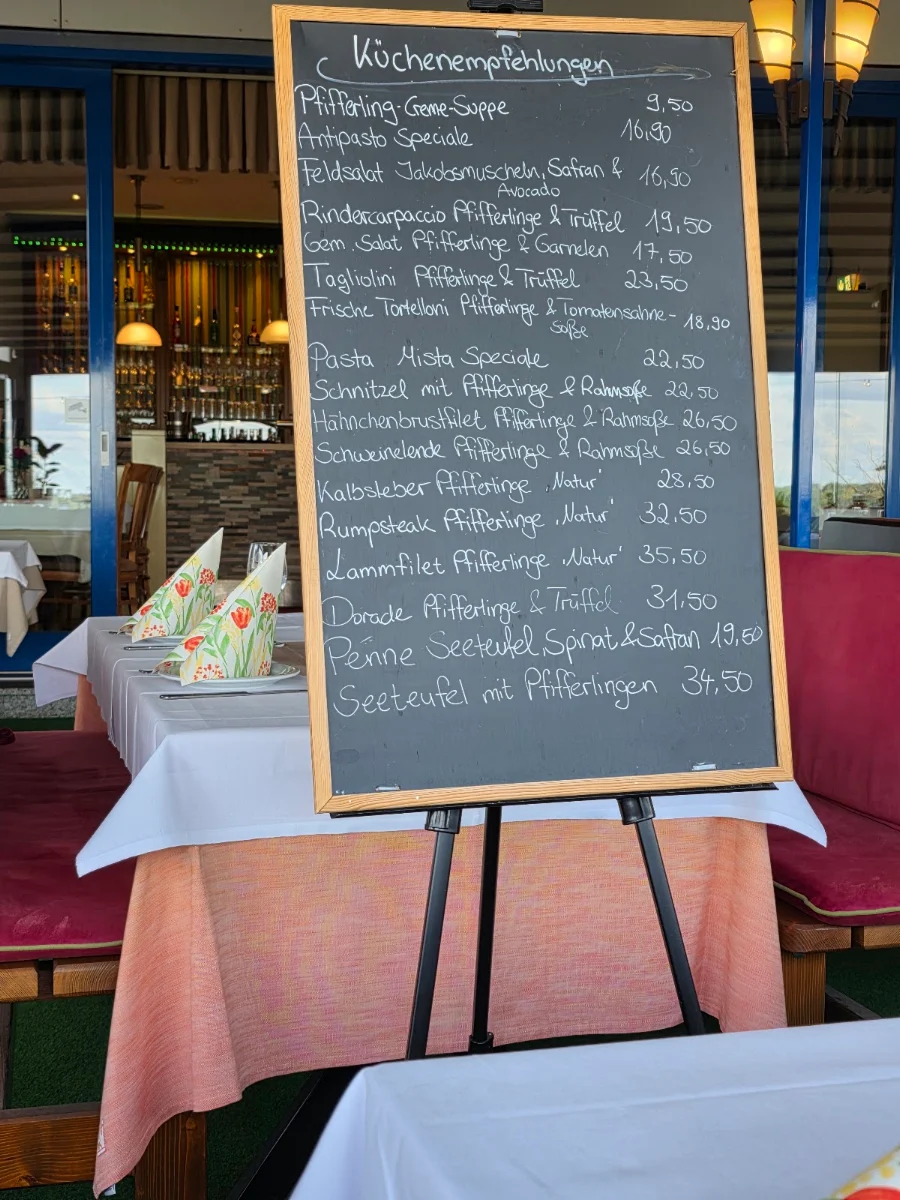 Küchenempfehlungen
Pfifferling-Creme-Suppe 9,50
Antipasto Speciale 16,90
Feldsalat Jakobsmuscheln, Safran & 16,90
Avocado
Rindercarpaccio Pfifferlinge & Trüffel 19,50
Gem. Salat Pfifferlinge & Garnelen 17,50
Tagliolini Pfifferlinge & Trüffel 23,50
Frische Tortelloni Pfifferlinge & Tomatensahne- 18,90
Soße
Pasta Mista Speciale 22,50
Schnitzel mit Pfifferlinge & Rahmsoße 22,50
Hähnchenbrustfilet Pfifferlinge & Rahmsoße 26,50
Schweinelende Pfifferlinge & Rahmsoße 26,50
Kalbsleber Pfifferlinge ‚Natur' 28,50
Rumpsteak Pfifferlinge ‚Natur' 32,50
Lammfilet Pfifferlinge ‚Natur' 35,50
Dorade Pfifferlinge & Trüffel 31,50
Penne Seeteufel, Spinat & Safran 19,50
Seeteufel mit Pfifferlingen 34,50